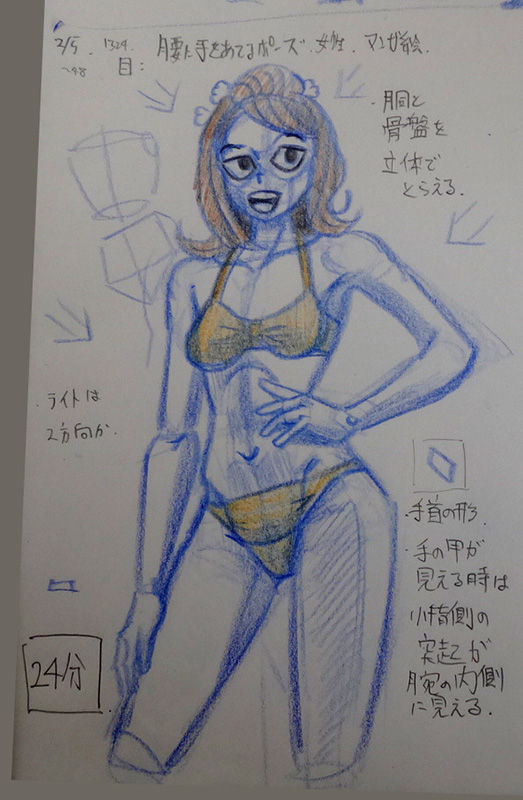 2/5. 1324 腰に手をあてるポーズ.女性.マンガ絵.
~48 目:
・胴と
骨盤を
立体で
とらえる.
・ライトは
2方向か.
・手首の形.
・手の甲が
見える時は
小指側の
突起が
腕の内側
に見える.
24分